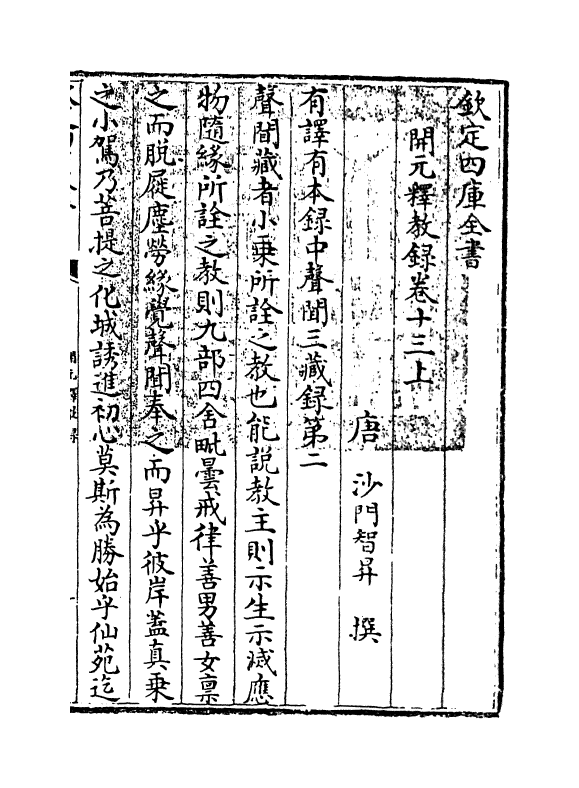 欽定四庫全書
開元釋教録卷十三上
唐 沙門智昇 撰
有譯有本録中聲聞三藏録第二
聲聞藏者小乗所詮之教也能説教主則示生示滅應
物隨緣所詮之教則九部四含毗曇戒律善男善女禀
之而脱屣塵勞緣覺聲聞奉之而昇乎彼岸葢真乗
之小駕乃菩提之化城誘進初心莫斯為勝始乎仙苑迄